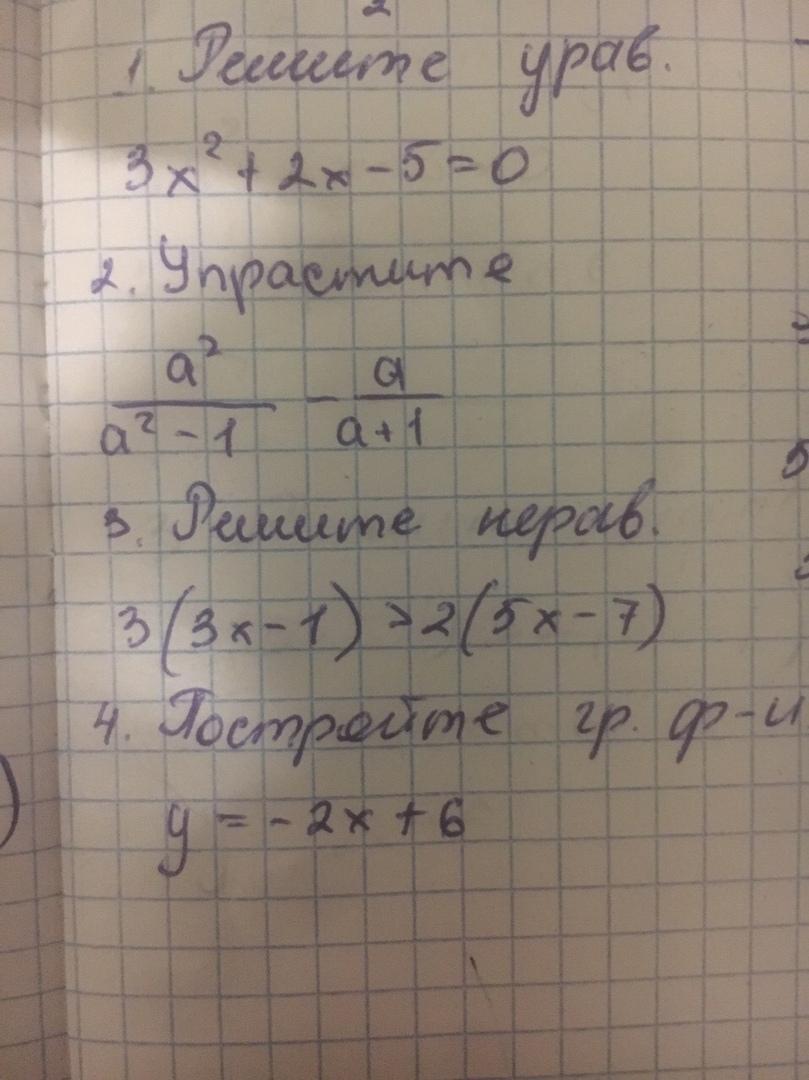 2
1. Решите урав.
3x² + 2x - 5 = 0
2. Упрастите
a²/(a² - 1) - a/(a + 1)
3. Решите нерав.
3(3x - 1) > 2(5x - 7)
4. Постройте гр. ф-и
y = -2x + 6